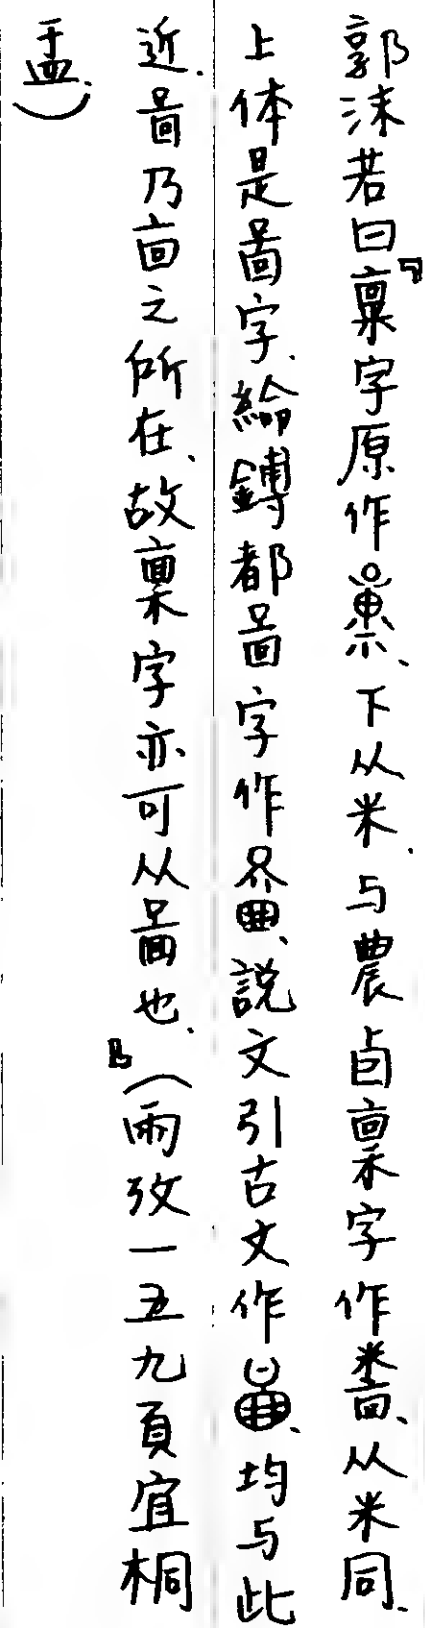 郭沫若曰『稟字原作、下从米、与農卣稟字作、从米同、
上体是啚字、綸鎛都啚字作、説文引古文作、均与此
近、啚乃㐭之所在、故稟字亦可从啚也、』(兩攷一五九頁宜桐
盂)